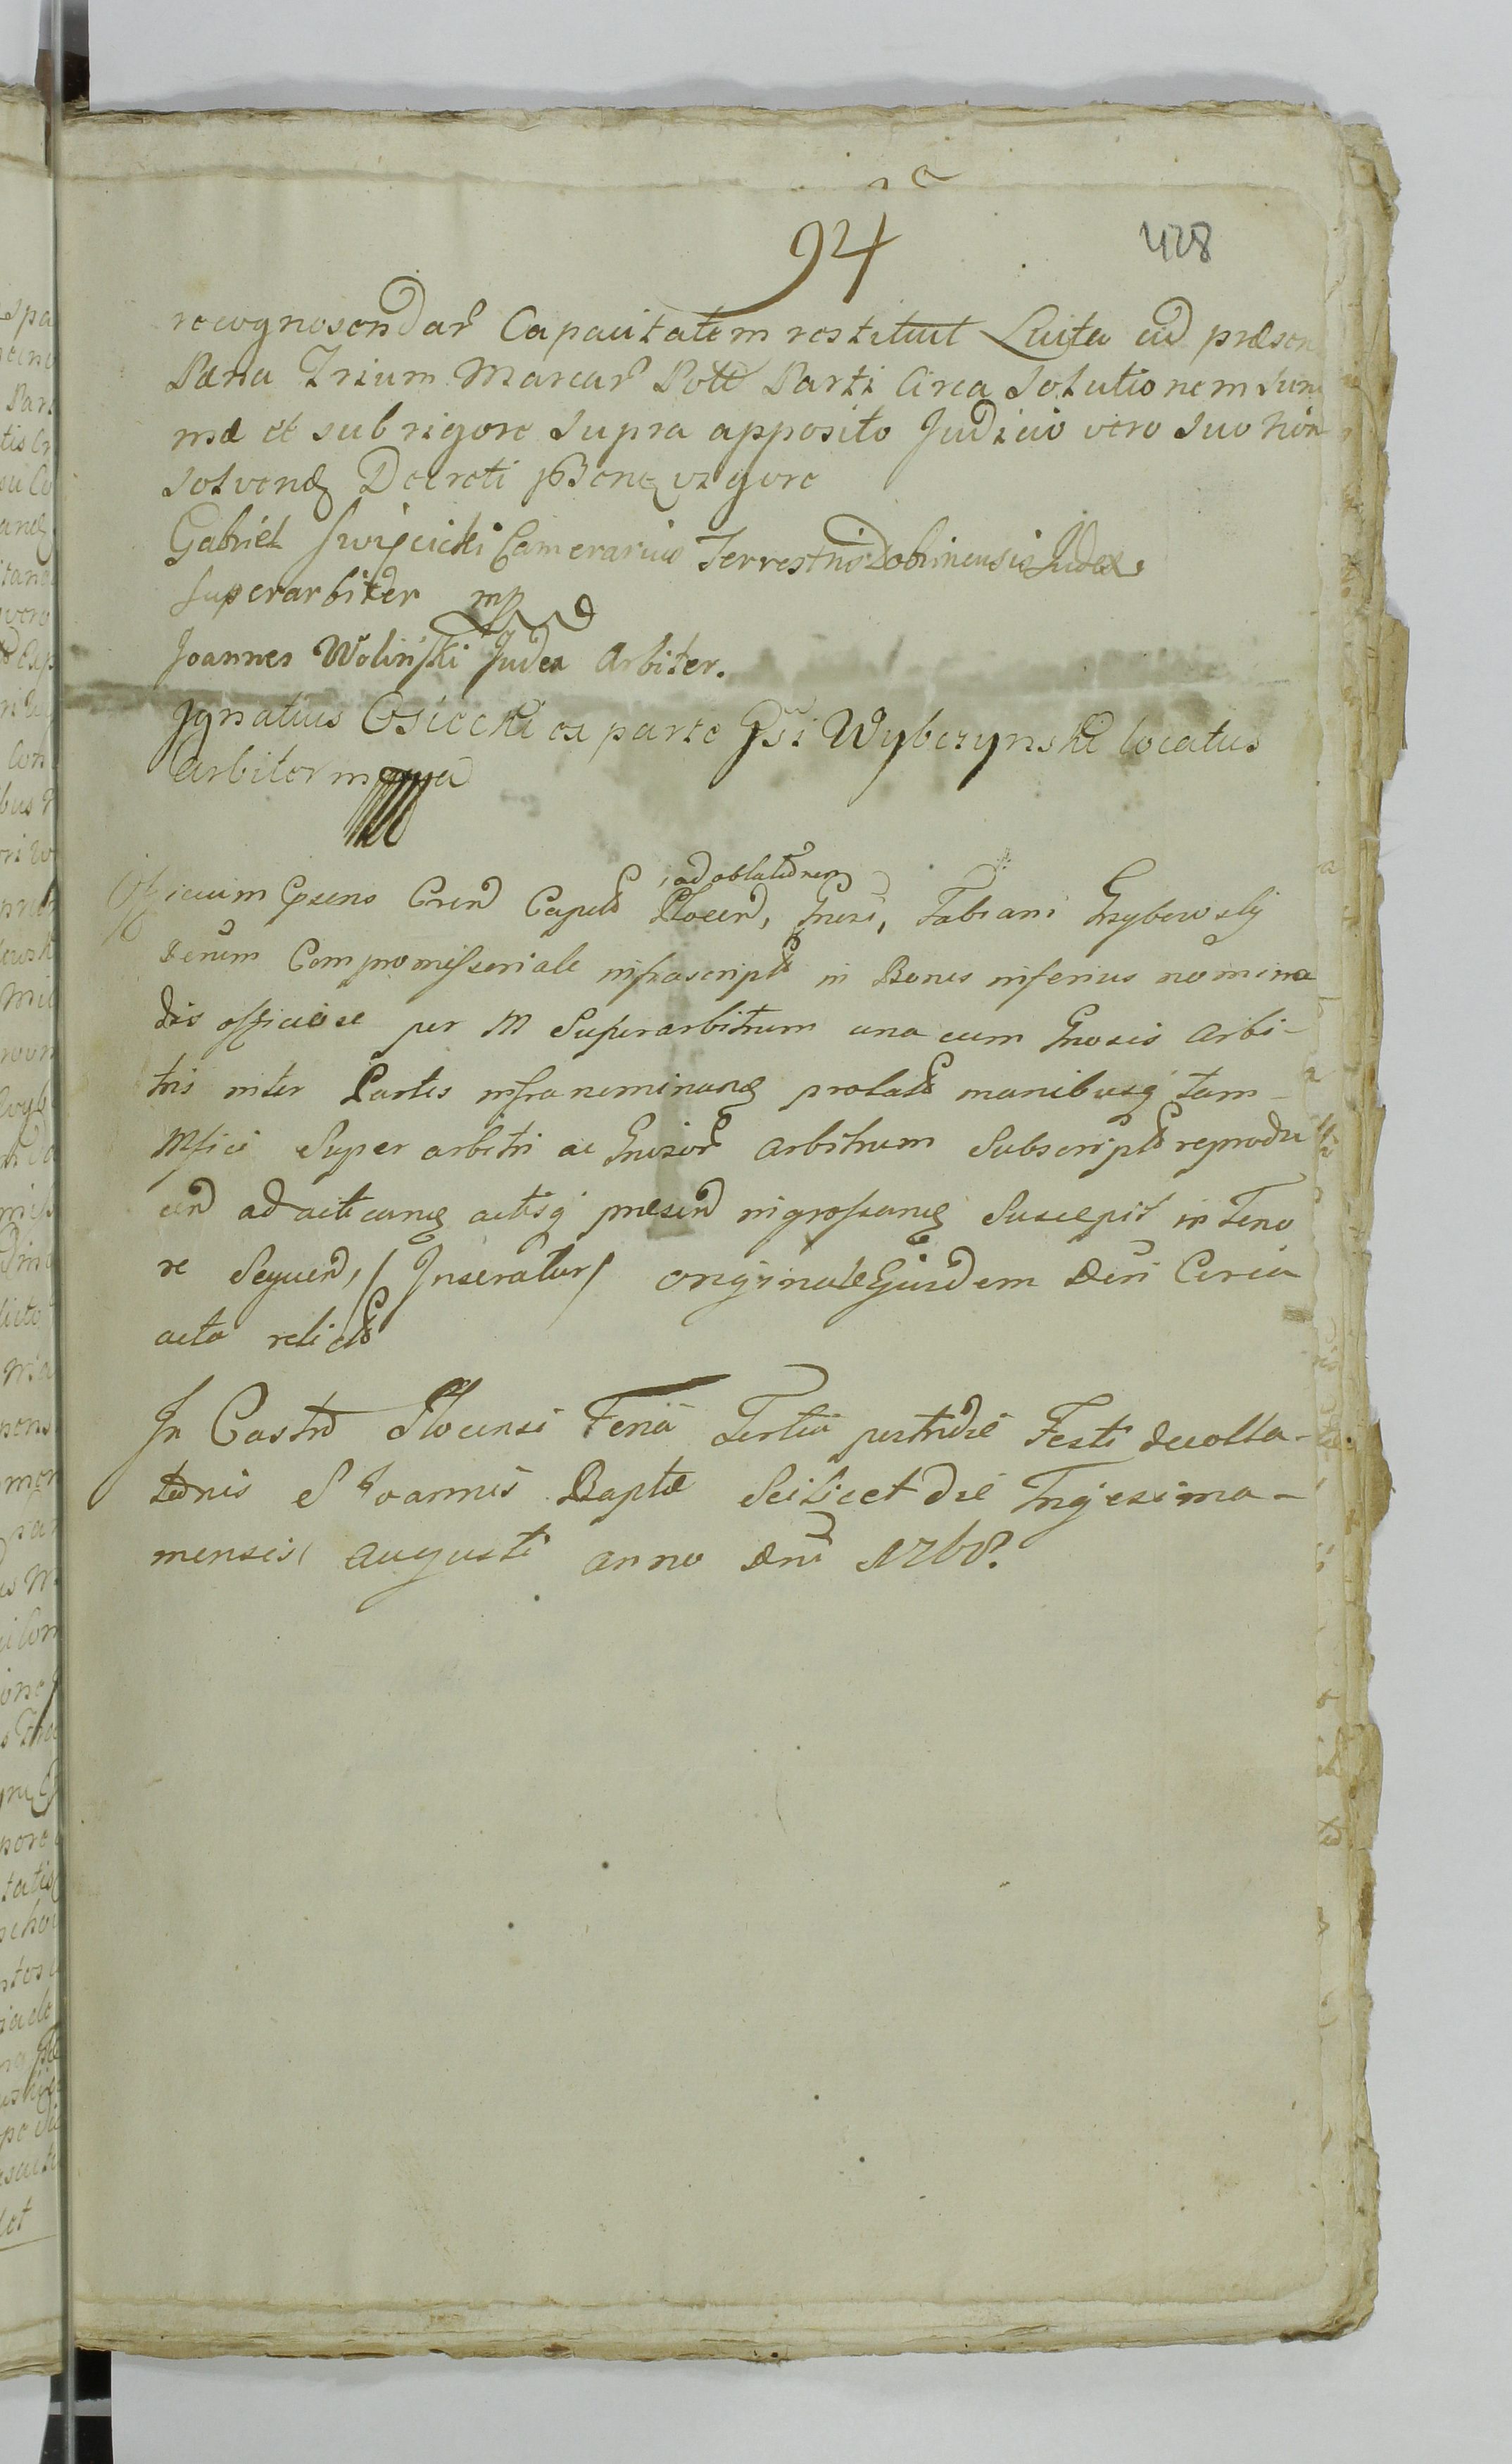 94
428
recognoscendar Capacitatem restituit Luita ad præsen
Pæna Trium Marcar Potti Parti Circa Solutionem Sum
mæ et sub rigore Supra apposito Judicio vero Suo non
Solvend Decreti pōBenq vigore
Gabriel Swięcicki Camerarius Terrestris Dobrinensis Judex
Superarbiter mp
Joannes Woliński Judex Arbiter.
Jgnatius Osiecki ex parte Gsi Wybczynski locatus
Arbiter mppa
, ad oblationem
Officium Cpsens Crend Capit Plocen, Gnesi, Fabiani Grzybowskj
Derum Compromissoriale infrascript in Bonis inferius nomina
dis officiose per M Superarbitrum una cum Gnosis Arbi-
tris inter Partes infranominand prolat manibusq tam
Mfici Super arbitri ac Gnosor Arbitrum Subscript reprodu
cen ad acticand actisq præsen ingrossand Suscepit in Teno
re Sequen, / Jnseratur / originale Ejusdem Deri Circa
acta relict
Jn Castro Plocensi Feria Tertia postridie Festi decolla-
tionis S Joannis Baptæ Scilicet die Trigesima-
mensis Augusti anno Dni 1768.